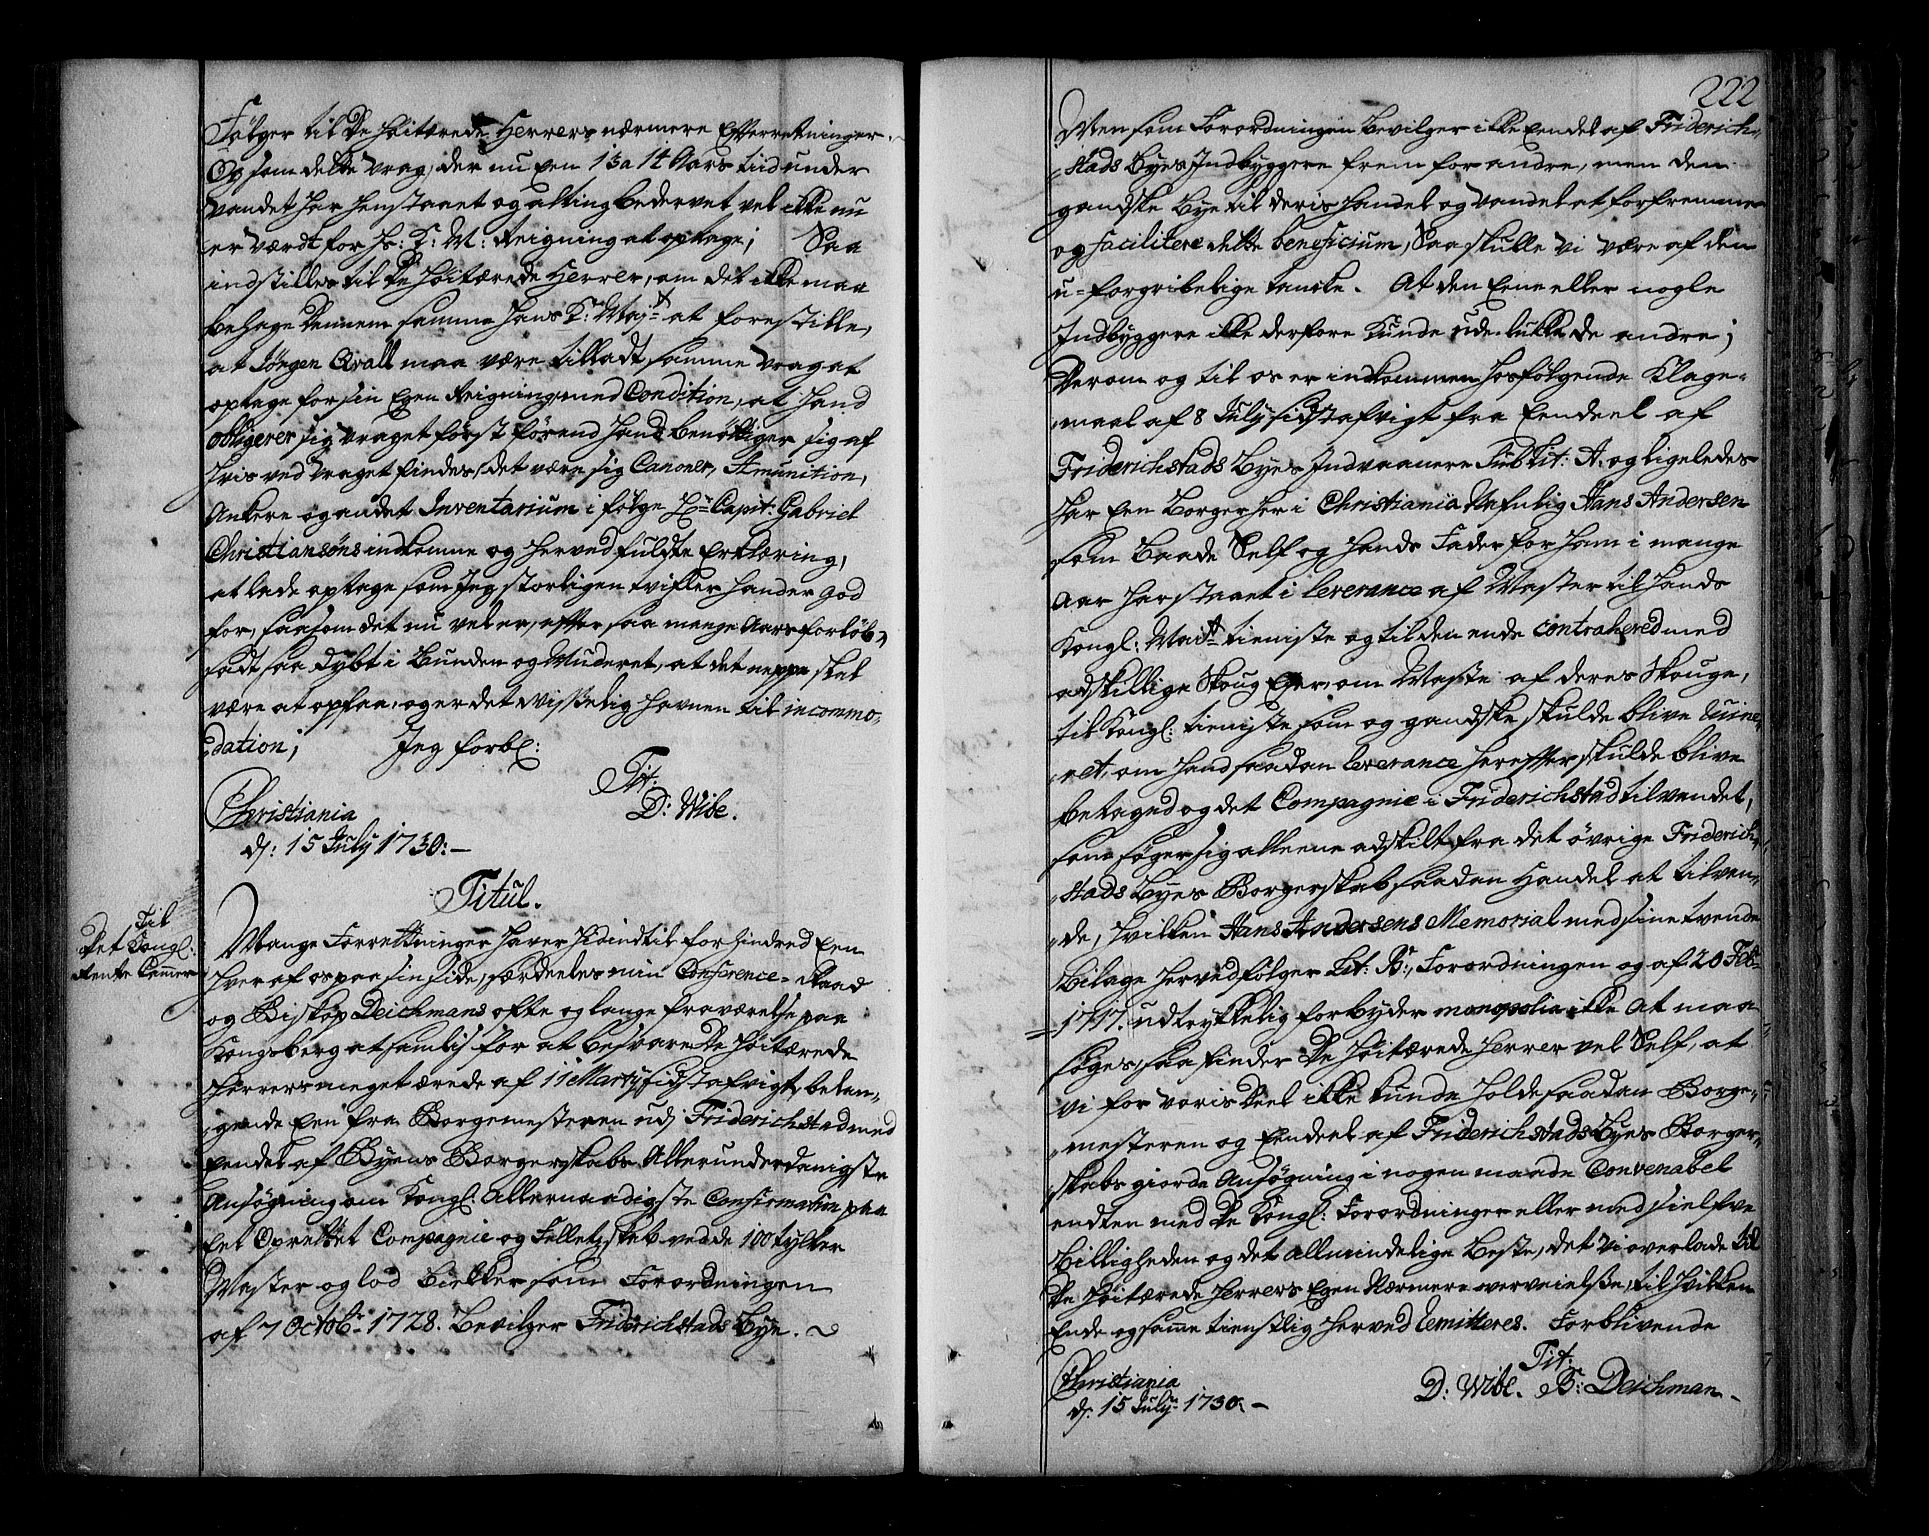 Følger til De Høitærede Herrers nærmere Efterretninger.
Og som dette Vrag, der nu i en 13 a 14 Aars tiid under
Vandet har henstaaet og alting bedervet vel ikke nu
er værdt for Hs: K: M: Reigning at optage; Saa
indstilles til De Høitærede Herrer, om det ikke maa
behage Dennem samme Hans K: Maj:t at forestille,
at Jørgen Qvall maa være tilladt, samme Vrag at
optage for sin Egen Reigning, med Condition, at Hand
obligerer sig Vraget først førend Hand benøttiger sig af
Hvis ved Vraget findes, det være sig Canoner, Amunition,
Ankere og andet Inventarium i følge Hr: Capit: Gabriel
Christiansøns indkomne og herved fuldte Erklæring,
at lade optage som Jeg storligen tvifler Hand er god
for, saasom det nu vel er, efter saa mange Aars forløb,
sadt saa dybt i Bunden og Muderet, at det neppe skal
være at opfaa, og er det visselig Havnen til incommo-
dation; Jeg forbl:
Tit:
D: Wibe.
Christiania
d: 15 July 1730:—
Titul.
Til
Det Kongl:
Rente Cammer
Mange Forrettninger haver hidindtil forhindred Een
hver af os paa sin side, særdeeles min Conference-Raad
og Biskop Deichmans ofte og lange fraværelse paa
Kongsberg at samtlig for at besvare De Høitærede
Herrers meget ærede af 11 Marty sidst afvigt, belan-
gende Een fra Borgemesteren udj Friderichstad med
Eendel af Byens Borgerskabs Allerunderdanigste
Ansøgning om Kongl: Allernaadigste Confirmation paa
Eet Oprettet Compagnie og Selletzskab vedde 100 tylter
Master og lod Bielker som Forordningen
af 7 Octobr: 1728. Bevilger Friderichstads Bye.
222
Men som Forordningen Bevilger ikke Eendel af Friderich-
stads Byes Indbyggere frem for andre, men den
gandske Bye til deris Handel og Vandel at forfremme
og facilitere dette beneficium, Saa skulle Vi være af den
u-forgribelige tancke. At den Eene eller nogle
Indbyggere ikke derfore kunde udelukke de andre;
Derom og til os er indkommen Hosfølgende Klage-
maal af 8 July sidst afvigt fra Eendeel af
Friderichstads Byes Indvaanere Sub Lit: A. og ligeledes
har Een Borger her i Christiania Nafnlig Hans Andersen
som Baade Self og Hands Fader for ham i mange
Aar har staaet i leverance af Master til Hands
Kongl: Mai:t tieniste og til den ende contrahered med
adskillige Skoug Eyer, om Maste af deres Skouge,
til Kongl: tieniste som og gandske skulde blive Ruine-
ret, om Hand saadan leverance herefter skulde blive
betaged og det Compagnie i Friderichstad tilvendet,
som søger sig alleene adskilt fra det øvrige Friderich-
stads Byes Borgerskab saadan Handel at tilven-
de, Hvilken Hans Andersens Memorial med sine tvende
Bilage Herved følger Lit: B:, Forordningen og af 20 Feb:
1717. udtrykkelig forbyder monopolia ikke at maa
søges, saa finder De Høitærede Herrer vel Self, at
vi for voris Deel ikke kunde holde saadan Borge-
mesteren og Eendeel af Friderichstads Byes Borger-
skabs giorde Ansøgning i nogen maade Convenabel
endten med De Kongl: Forordninger eller med sielfve
Billigheden og det Allmindelige Beste, det Vi overlade til
De Høitærede Herrers Egen Nærmere overveielse, til Hvilken
Ende og samme tienstlig herved Remitteres. Forblivende
Tit:
D: Wibe. B: Deichman
Christiania
d: 15 July 1730:—